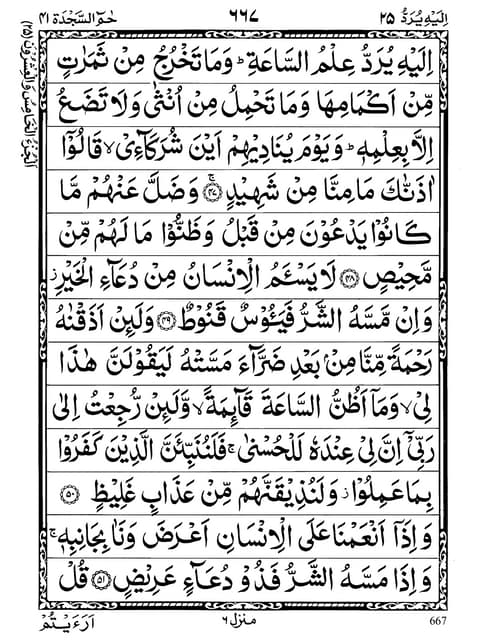 اِلَيْهِ يُرَدُّ ٢٥
٦٦٧
حٰمٓ السَّجْدَة ٤١
اَلْجُزْءُ الْخَامِسُ وَالْعِشْرُوْنَ (٢٥)
اِلَيْهِ يُرَدُّ عِلْمُ السَّاعَةِ ؕ وَمَا تَخْرُجُ مِنْ ثَمَرٰتٍ
مِّنْ اَكْمَامِهَا وَمَا تَحْمِلُ مِنْ اُنْثٰى وَلَا تَضَعُ
اِلَّا بِعِلْمِهٖ ؕ وَيَوْمَ يُنَادِيْهِمْ اَيْنَ شُرَكَآءِىْ ۙ قَالُوْۤا
اٰذَنّٰكَ مَا مِنَّا مِنْ شَهِيْدٍ ۚ﴿٤٧﴾ وَضَلَّ عَنْهُمْ مَّا
كَانُوْا يَدْعُوْنَ مِنْ قَبْلُ وَظَنُّوْا مَا لَهُمْ مِّنْ
مَّحِيْصٍ ﴿٤٨﴾ لَا يَسْـَٔمُ الْاِنْسَانُ مِنْ دُعَآءِ الْخَيْرِ ز
وَاِنْ مَّسَّهُ الشَّرُّ فَيَـُٔوْسٌ قَنُوْطٌ ﴿٤٩﴾ وَلَىِٕنْ اَذَقْنٰهُ
رَحْمَةً مِّنَّا مِنْۢ بَعْدِ ضَرَّآءَ مَسَّتْهُ لَيَقُوْلَنَّ هٰذَا
لِىْ ۙ وَمَاۤ اَظُنُّ السَّاعَةَ قَآىِٕمَةً ۙ وَّلَىِٕنْ رُّجِعْتُ اِلٰى
رَبِّىْۤ اِنَّ لِىْ عِنْدَهٗ لَلْحُسْنٰى ۚ فَلَنُنَبِّئَنَّ الَّذِيْنَ كَفَرُوْا
بِمَا عَمِلُوْا ز وَلَنُذِيْقَنَّهُمْ مِّنْ عَذَابٍ غَلِيْظٍ ﴿٥٠﴾
وَاِذَاۤ اَنْعَمْنَا عَلَى الْاِنْسَانِ اَعْرَضَ وَنَاٰ بِجَانِبِهٖ ۚ
وَاِذَا مَسَّهُ الشَّرُّ فَذُوْ دُعَآءٍ عَرِيْضٍ ﴿٥١﴾ قُلْ
اَرَءَيْتُمْ
منزل ٦
667